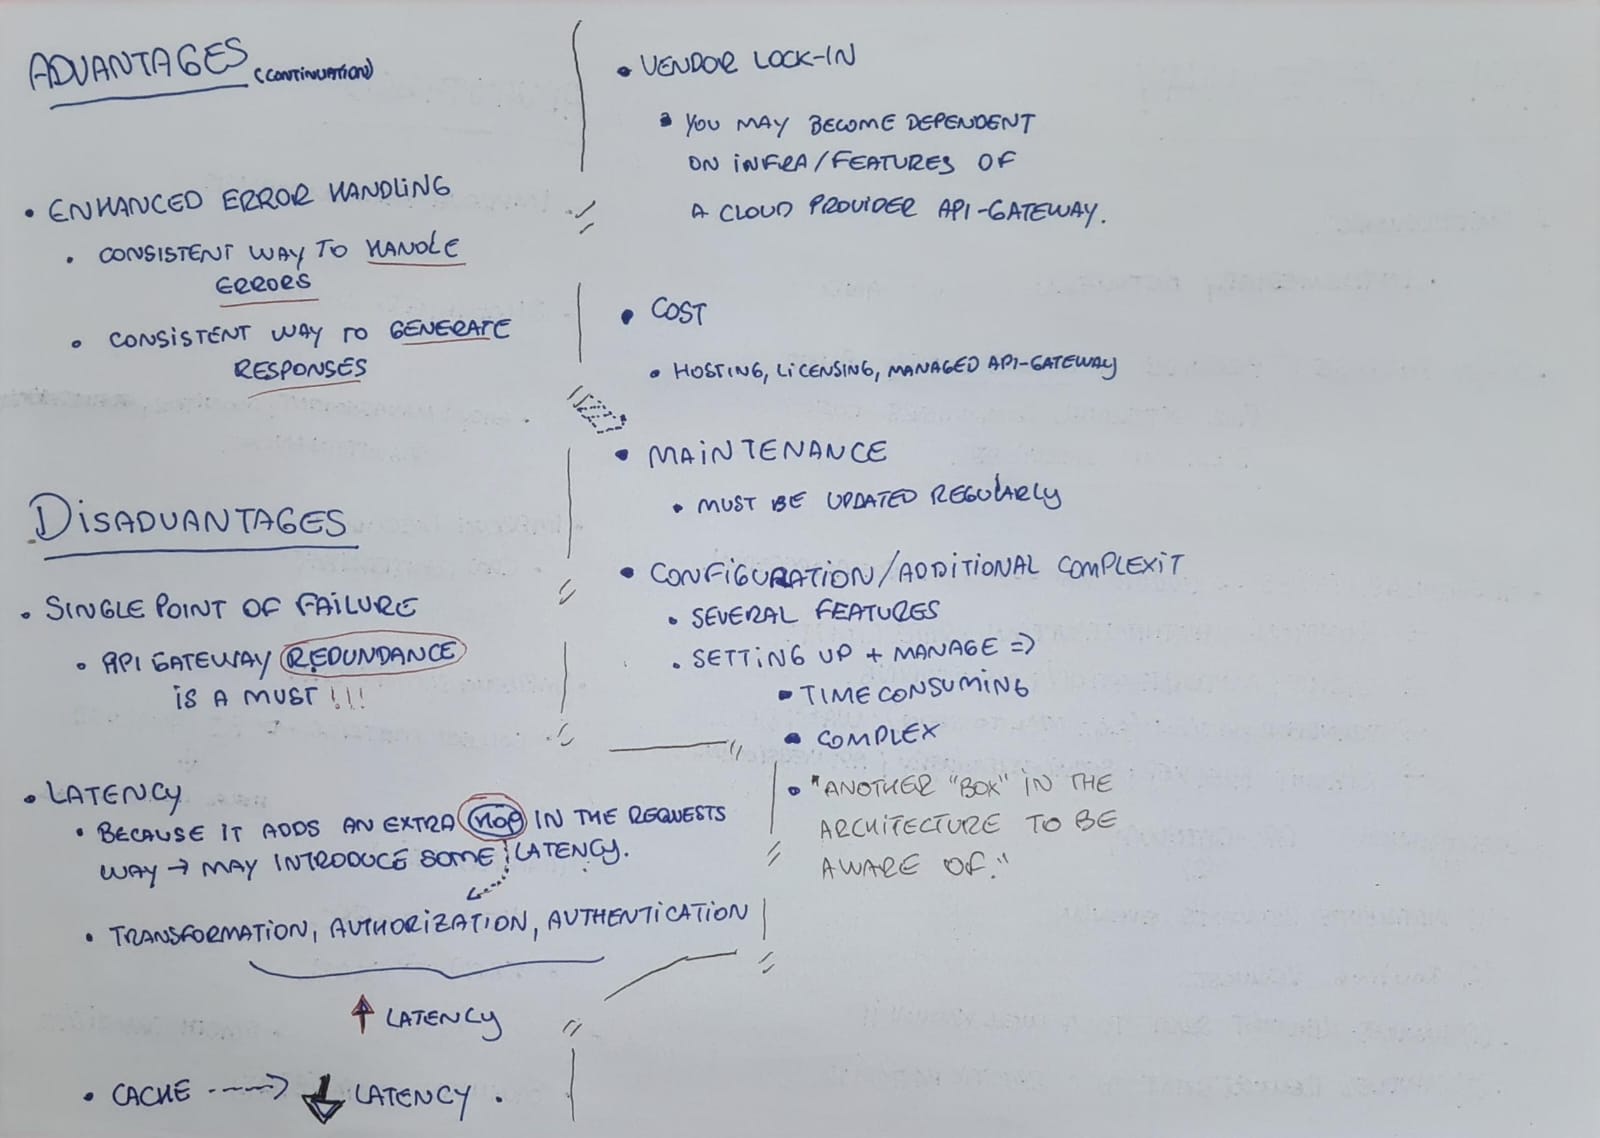 ADVANTAGES (CONTINUATION)
• ENHANCED ERROR HANDLING
• CONSISTENT WAY TO HANDLE
ERRORS
• CONSISTENT WAY TO GENERATE
RESPONSES
DISADVANTAGES
• SINGLE POINT OF FAILURE
• API GATEWAY REDUNDANCE
IS A MUST!!!
• LATENCY
• BECAUSE IT ADDS AN EXTRA HOP IN THE REQUESTS
WAY → MAY INTRODUCE SOME LATENCY.
• TRANSFORMATION, AUTHORIZATION, AUTHENTICATION
↑ LATENCY
• CACHE ----> ↓ LATENCY.
• VENDOR LOCK-IN
• YOU MAY BECOME DEPENDENT
ON INFRA/FEATURES OF
A CLOUD PROVIDER API-GATEWAY.
• COST
• HOSTING, LICENSING, MANAGED API-GATEWAY
• MAINTENANCE
• MUST BE UPDATED REGULARLY
• CONFIGURATION/ADDITIONAL COMPLEXIT
• SEVERAL FEATURES
• SETTING UP + MANAGE =>
• TIME CONSUMING
• COMPLEX
• "ANOTHER "BOX" IN THE
ARCHITECTURE TO BE
AWARE OF."